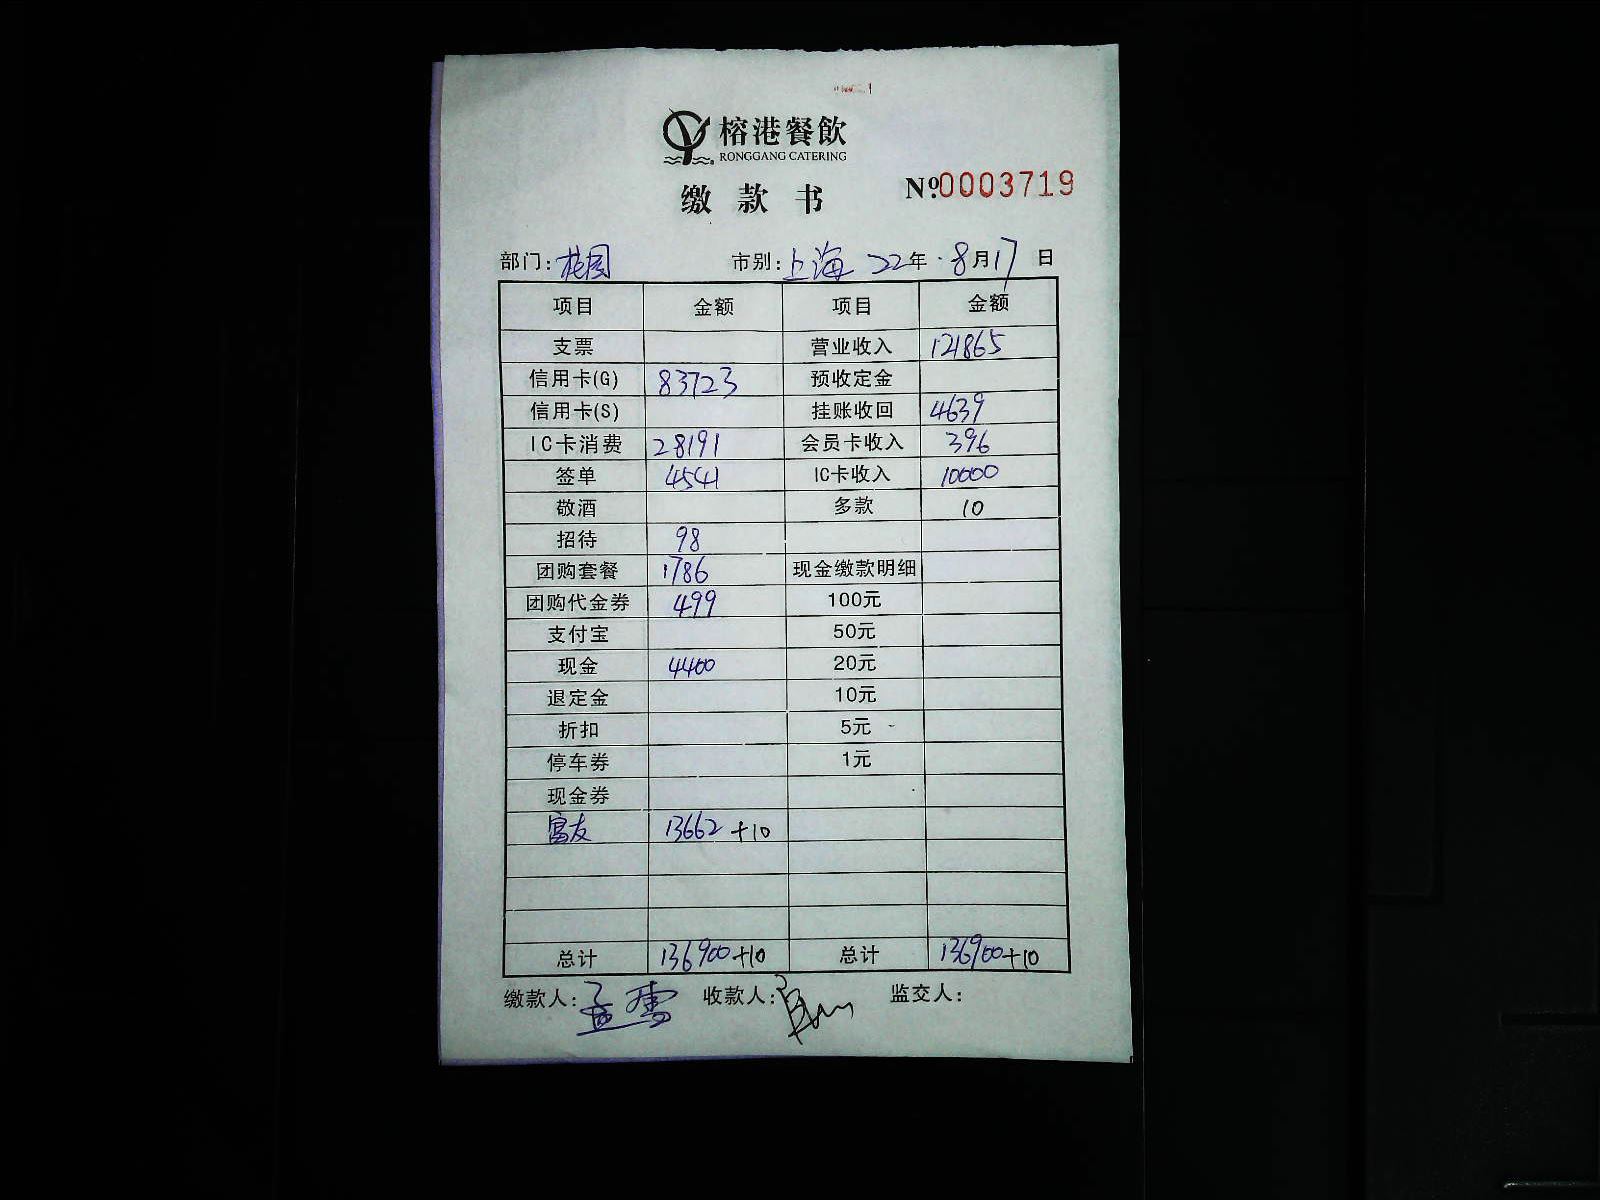 榕港餐飲
RONGGANG CATERING
缴款书
№0003719
部门: 花园 市别: 上海 22年 8月17日
项目 金额 项目 金额
支票 营业收入 121865
信用卡(G) 83723 预收定金
信用卡(S) 挂账收回 4639
IC卡消费 28191 会员卡收入 396
签单 4541 IC卡收入 10000
敬酒 多款 10
招待 98
团购套餐 1786 现金缴款明细
团购代金券 499 100元
支付宝 50元
现金 4400 20元
退定金 10元
折扣 5元
停车券 1元
现金券
富友 13662 +10
总计 136900+10 总计 136900+10
缴款人: 孟雪 收款人: 监交人: